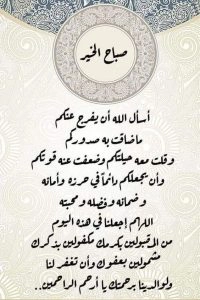 صباح الخير
أسأل الله أن يفرج عنكم
ماضاقت به صدوركم
وقلت معه حيلتكم وضعفت عنه قوتكم
وأن يجعلكم دائماً في حرزه وأمانه
وضمانه وفضله ومحبته
اللهم إجعلنا في هذه اليوم
من المقبولين بكرمك مكفولين بذكرك
مشمولين بعفوك وأن تغفر لنا
ولوالدينا برحمتك يا أرحم الراحمين..